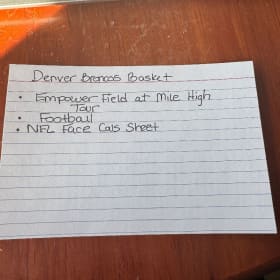 Denver Broncos Basket
• Empower Field at Mile High
Tour
• Football
• NFL Face Cals Sheet